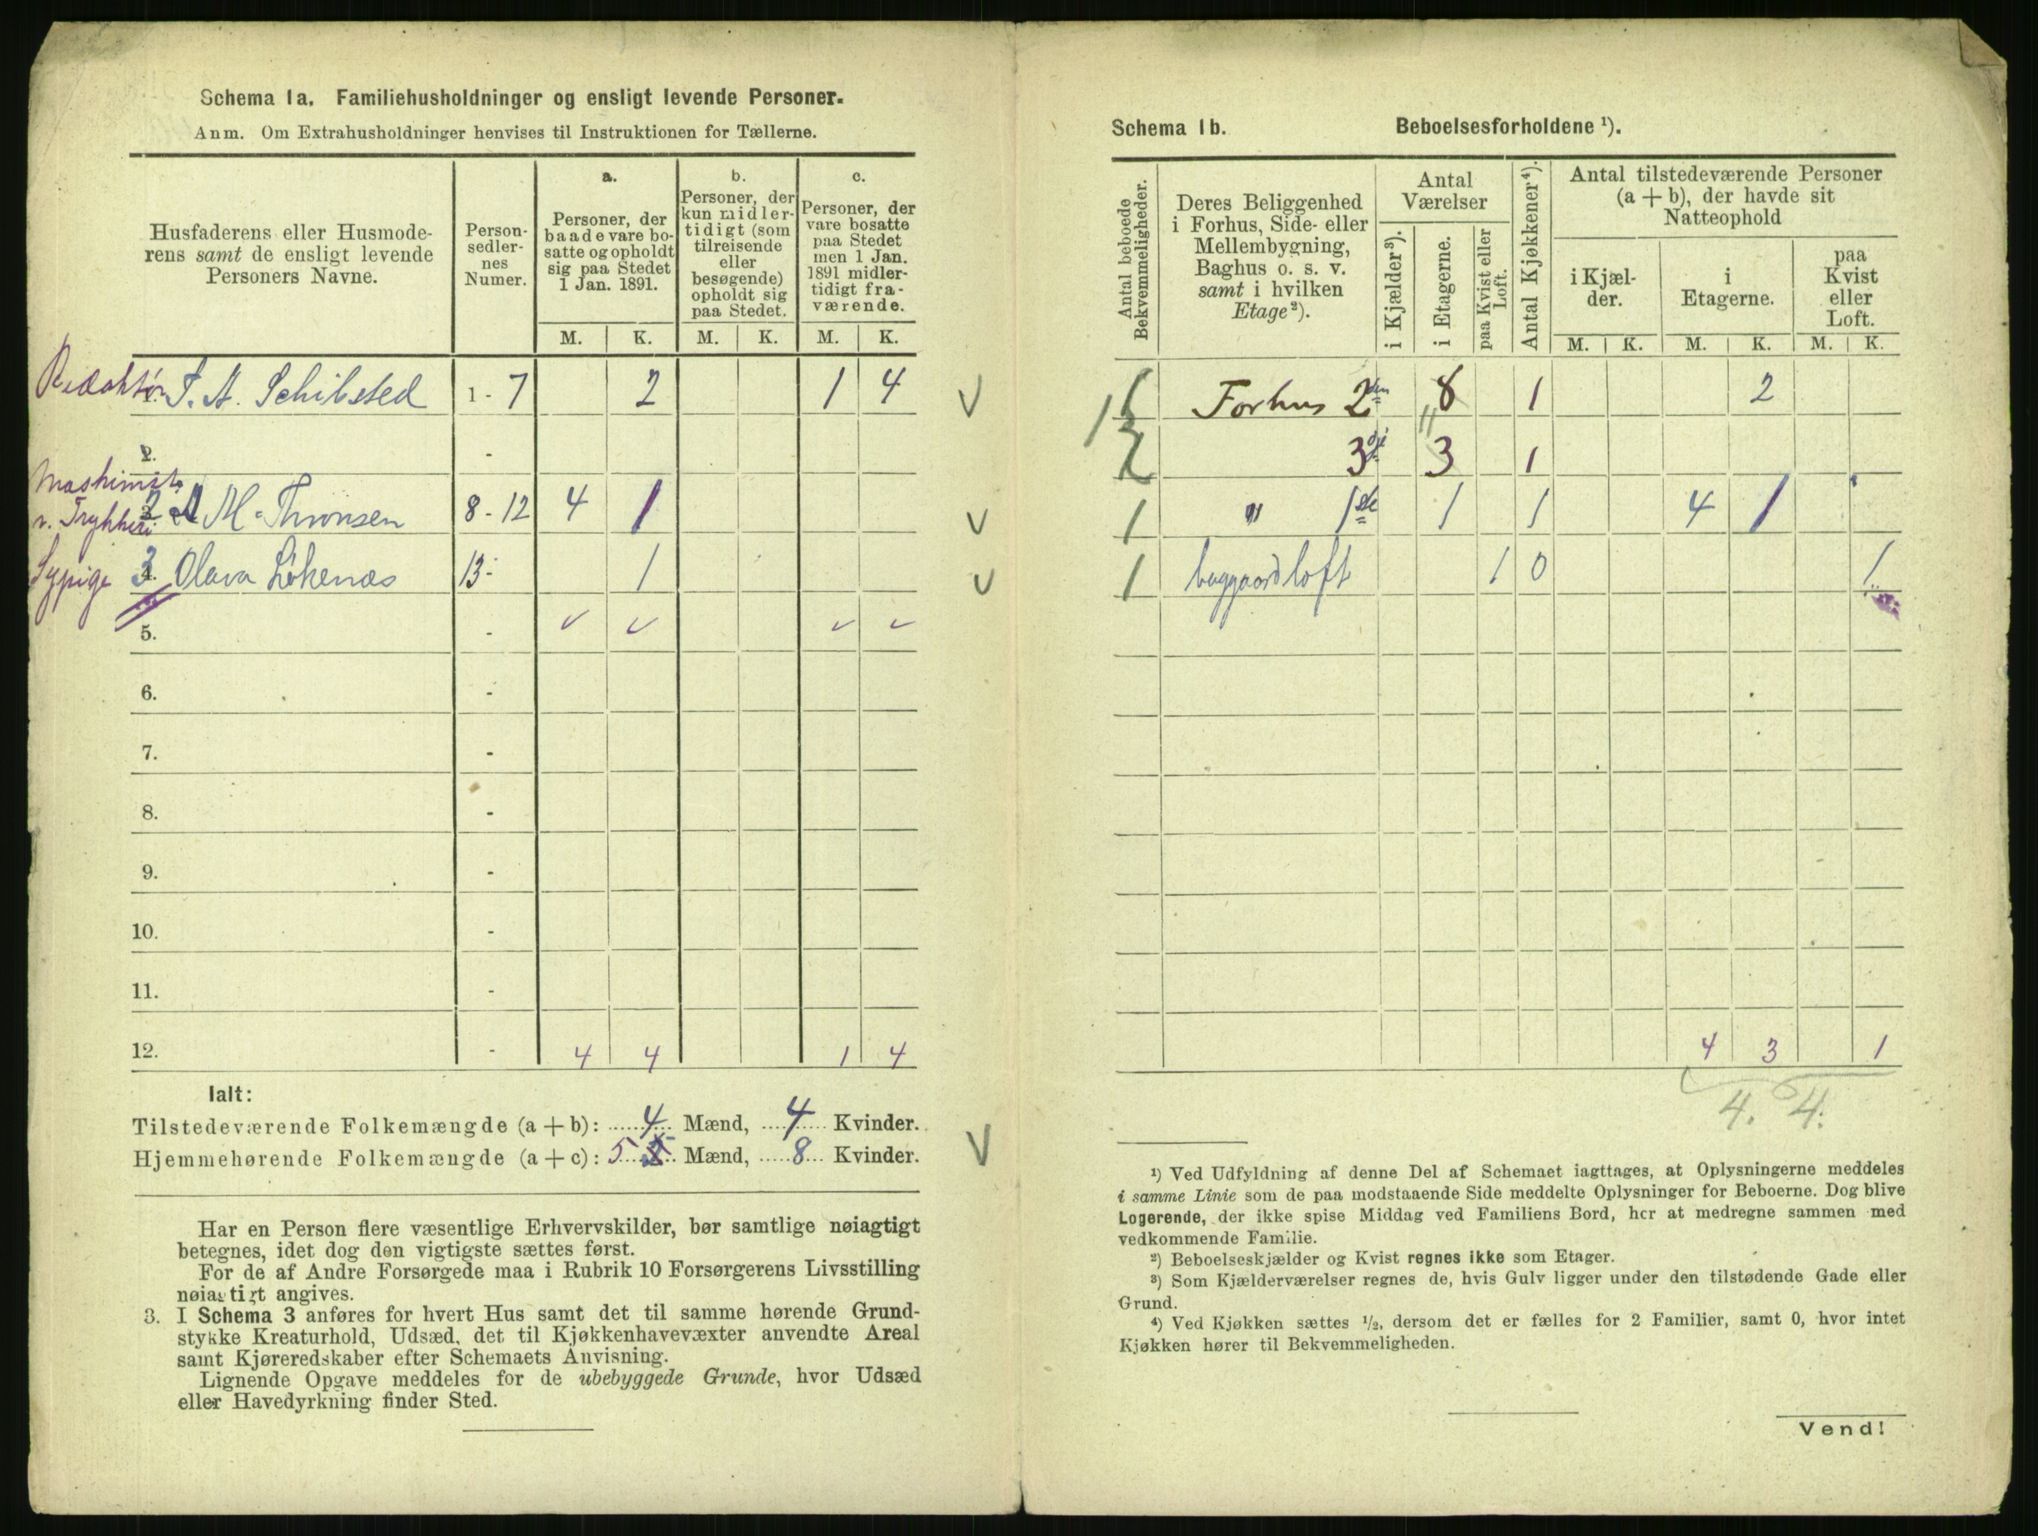 Schema 1a. Familiehusholdninger og ensligt levende Personer.
Anm. Om Extrahusholdninger henvises til Instruktionen for Tællerne.
Husfaderens eller Husmode-
rens samt de ensligt levende
Personers Navne.
Person-
sedler-
nes
Numer.
a.
Personer, der
baade vare bo-
satte og opholdt
sig paa Stedet
1 Jan. 1891.
b.
Personer, der
kun midler-
tidigt (som
tilreisende
eller
besøgende)
opholdt sig
paa Stedet.
c.
Personer, der
vare bosatte
paa Stedet
men 1 Jan.
1891 midler-
tidigt fra-
værende.
M. K. M. K. M. K.
Redaktør 1. T. A. Schibsted 1 - 7 2 1 4
2. -
Maskinist
v. Trykkeri 2 M. Thronsen 8 - 12 4 1
Sypige 3 4. Olava Løkenæs 13 - 1
5. -
6. -
7. -
8. -
9. -
10. -
11. -
12. - 4 4 1 4
Ialt:
Tilstedeværende Folkemængde (a + b): 4 Mænd, 4 Kvinder.
Hjemmehørende Folkemængde (a + c): 5 Mænd, 8 Kvinder.
Har en Person flere væsentlige Erhvervskilder, bør samtlige nøiagtigt
betegnes, idet dog den vigtigste sættes først.
For de af Andre Forsørgede maa i Rubrik 10 Forsørgerens Livsstilling
nøiagtigt angives.
3. I Schema 3 anføres for hvert Hus samt det til samme hørende Grund-
stykke Kreaturhold, Udsæd, det til Kjøkkenhavevæxter anvendte Areal
samt Kjøreredskaber efter Schemaets Anvisning.
Lignende Opgave meddeles for de ubebyggede Grunde, hvor Udsæd
eller Havedyrkning finder Sted.
Schema 1b. Beboelsesforholdene ¹).
Antal beboede
Bekvemmeligheder.
Deres Beliggenhed
i Forhus, Side- eller
Mellembygning,
Baghus o. s. v.
samt i hvilken
Etage ²).
Antal
Værelser
i Kjælder ³).
i Etagerne.
paa Kvist eller
Loft.
Antal Kjøkkener ⁴).
Antal tilstedeværende Personer
(a + b), der havde sit
Natteophold
i Kjæl-
der.
i
Etagerne.
paa
Kvist
eller
Loft.
M. K. M. K. M. K.
1 Forhus 2den 8 1 2
3dje 3 1
1 " 1ste 1 1 4 1
1 baggaard loft 1 0 1
4 3 1
4. 4.
¹) Ved Udfyldning af denne Del af Schemaet iagttages, at Oplysningerne meddeles
i samme Linie som de paa modstaaende Side meddelte Oplysninger for Beboerne. Dog blive
Logerende, der ikke spise Middag ved Familiens Bord, her at medregne sammen med
vedkommende Familie.
²) Beboelseskjælder og Kvist regnes ikke som Etager.
³) Som Kjælderværelser regnes de, hvis Gulv ligger under den tilstødende Gade eller
Grund.
⁴) Ved Kjøkken sættes ½, dersom det er fælles for 2 Familier, samt 0, hvor intet
Kjøkken hører til Bekvemmeligheden.
Vend!